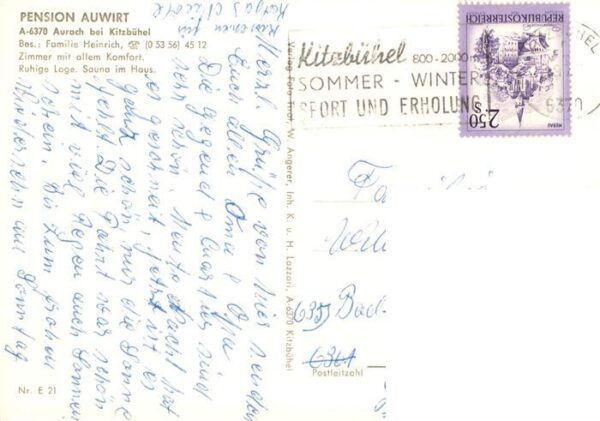 PENSION AUWIRT
A-6370 Aurach bei Kitzbühel
Bes.: Familie Heinrich, ☎ (0 53 56) 45 12
Zimmer mit allem Komfort.
Ruhige Lage. Sauna im Haus.
Herzl. Grüße von hier senden
Euch allen Oma + Opa
Die Gegend + Quartier sind
sehr schön. Heute Nacht hat
es geschneit, jetzt ist es
ganz schön, nur die Sonne
fehlt. Die Fahrt war schön
mit viel Regen auch Sonnen
schein. Bis zum frohen
Wiedersehn am Sonntag
Nr. E 21
Verlag Foto Tirol, W. Angerer, Inh. K. u. M. Lazzari, A-6370 Kitzbühel
Kitzbühel 800-2000m
SOMMER - WINTER
SPORT UND ERHOLUNG
6370
REPUBLIK ÖSTERREICH
S 2.50
MURAU
Fa
6357 Bad
6361
Postleitzahl